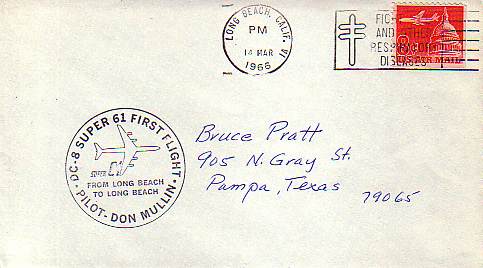 LONG BEACH, CALIF.
PM
14 MAR
1966
FIGHT
AND OTHER
RESPIRATORY
DISEASES
8c
US AIR MAIL
DC-8 SUPER 61 FIRST FLIGHT
SUPER 61
FROM LONG BEACH
TO LONG BEACH
PILOT-DON MULLIN
Bruce Pratt
905 N. Gray St.
Pampa, Texas
79065